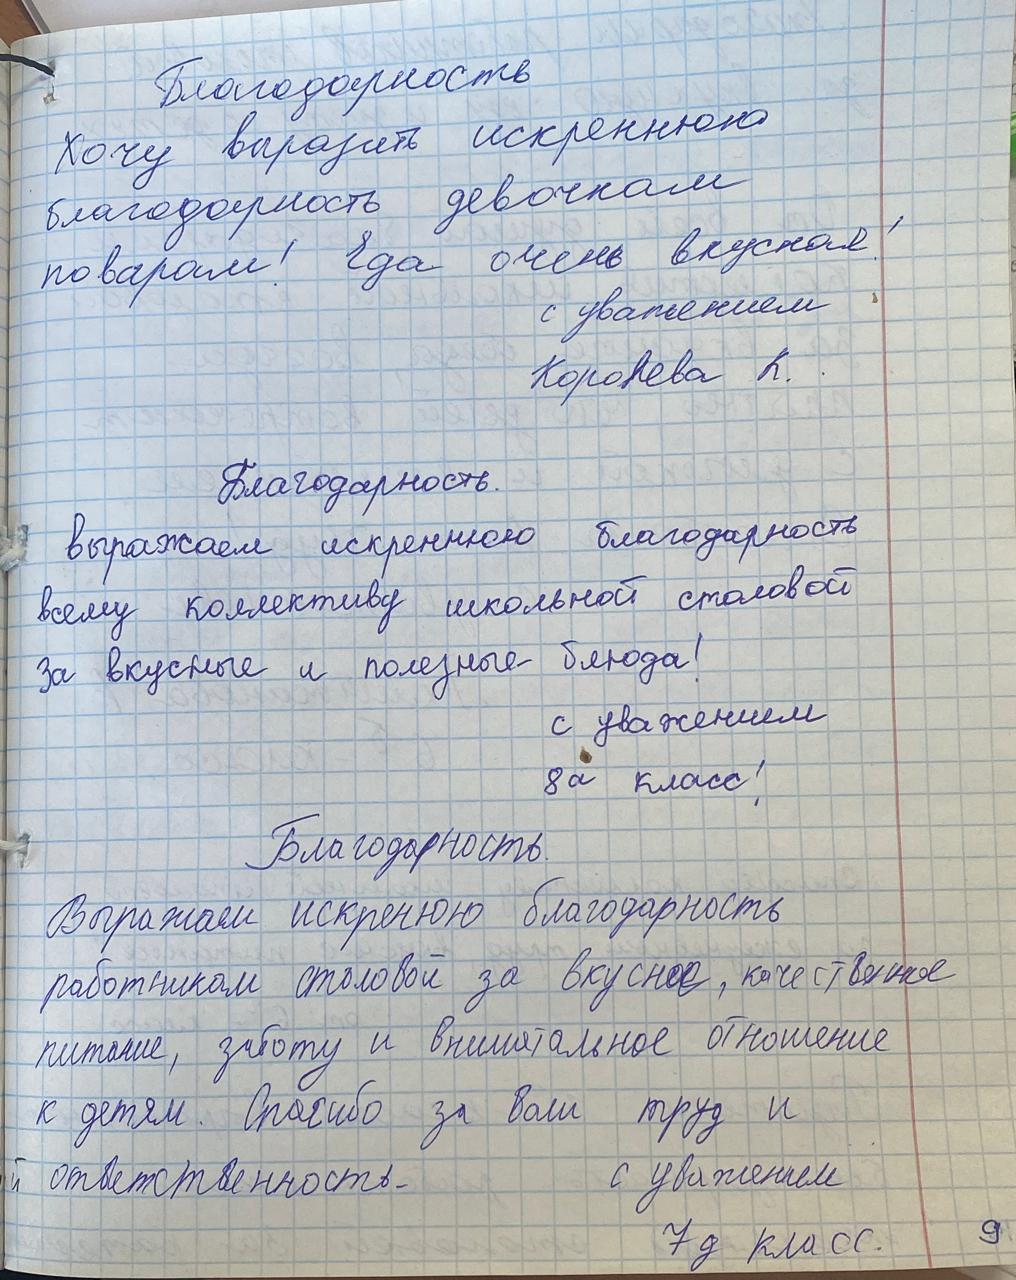 Благодарность
Хочу выразить искреннюю
благодарность девочкам
поварам! Еда очень вкусная!
с уважением
Королева К.
Благодарность.
выражаем искреннюю благодарность
всему коллективу школьной столовой
За вкусные и полезные блюда!
с уважением
8а класс!
Благодарность.
Выражаем искренюю благодарность
работникам столовой за вкусное, качественное
питание, заботу и внимательное отношение
к детям. Спасибо за Ваш труд и
ответственность.
с уважением
7д класс.
9